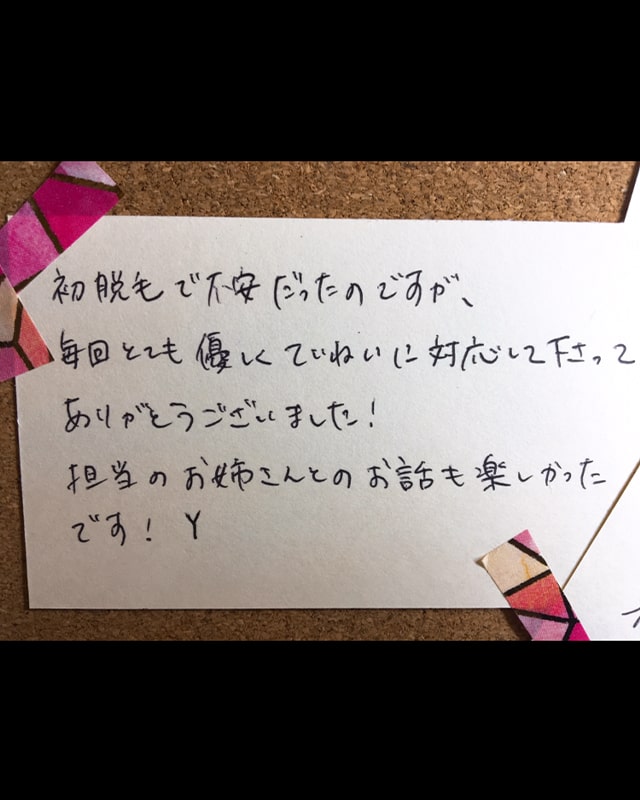 初脱毛で不安だったのですが、
毎回とても優しくていねいに対応して下さって
ありがとうございました！
担当のお姉さんとのお話も楽しかった
です！ Y